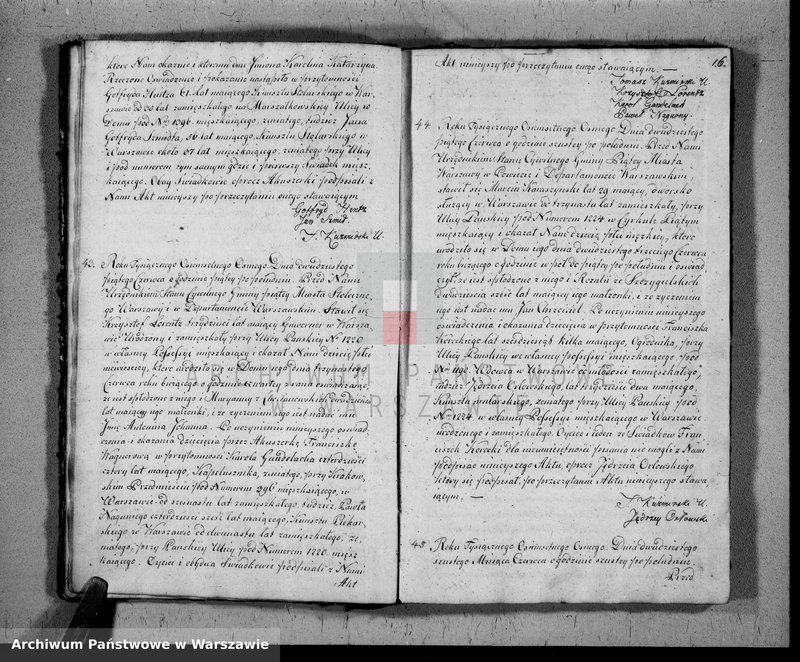 które Nam okaznie i któremu dał Imiona Karolina Katarzyna.
Rzeczone Oswiadczenie i pokazanie nastąpiło w przytomności
Gottfryda Hintza 61 lat maiącego Kunsztu Stolarskiego w War-
szawie od 30 lat zamięszkałego na Marszałkowskiey Ulicy w
Domu pod No 1396. mięszkaiącego, żonatego, tudzież Jana
Gottfryda Szmidta, 56 lat maiącego Kunsztu Stolarskiego w
Warszawie około 37 lat mięszkaiącego, żonatego przy Ulicy
i pod numerem tym samym gdzie i pierwszy Swiadek mięsz-
kaiącego. Obay Swiadkowie oprocz Akuszerki podpisali z
Nami Akt nineyszy po przeczytaniu onego stawaiącym
Gottfryd
Jan Szmit
J. Kuzminski U.
43. Roku Tysiącznego Osmsetnego Osmego. Dnia dwudziestego
piątego Czerwca o godzinie piątey po południu. Przed Nami
Urzędnikiem Stanu Cywilnego Gminy piątey Miasta Stołeczne-
go Warszawy i w Departamencie Warszawskim. Stawił się
Krzysztof Lorentz trzydzieści lat maiący Guwerner w Warsza-
wie Urodzony i zamięszkały przy Ulicy Pańskiey No 1220
w własney Possessyi mięszkaiący i okazał Nam dziecię płci
niewieściey, które urodziło się w Domu iego dnia trzynastego
Czerwca roku bieżącego o godzinie czwartey z rana oswiadczaiąc,
że iest spłodzone z niego i Maryanny z dwadzieścia
lat maiącey iego małżonki, i że życzeniem iego iest nadać iu
Imię Antonina Johanna. Po uczynieniu ninieyszego oswiad-
czenia i okazaniu dziecięcia przez Akuszerkę Franciszkę
Wagnerową w przytomności Karola Gundelacha czterdzieści
cztery lat maiącego, Kapelusznika, żonatego, przy Krakow-
skim Przedmieściu pod Numerem 396 mięszkaiącego w
Warszawie od szesnastu lat zamięszkałego, tudzież Pawła
Nagurnego czterdzieści sześć lat maiącego, Kunsztu Piekar-
skiego w Warszawie od dwunastu lat zamięszkałego, żo-
natego, przy Pańskiey Ulicy pod Numerem 1220 mięsz-
kaiącego. Oyciec i obydwa Swiadkowie podpisali z Nami
Akt
16.
Akt nineyszy po przeczytaniu onego stawaiącym. —
Tomasz Kuzminski U.
Krzysztof Lorentz
Karol Gundelach
Paweł Nagorny.
44. Roku Tysiącznego Osmsetnego Osmego Dnia dwudziestego
piątego Czerwca o godzinie szostey po południu. Przed Nami
Urzędnikiem Stanu Cywilnego Gminy Piątey Miasta
Warszawy w Powiecie i Departamencie Warszawskim,
stawił się Marcin Kamszynski lat 29 maiący, dworsko
służący w Warszawie od trzynastu lat zamięszkały, przy
Ulicy Pańskiey pod Numerem 1224 w Cyrkule Piątym
mięszkaiący i okazał Nam dziecię płci męzkiey, które
urodziło się w Domu iego dnia dwudziestego trzeciego Czerwca
roku bieżącego o godzinie w pół do piątey po południu i oswiad-
czył, że iest spłodzone z niego i Rozalii ze Strzygielskich
dwadzieścia sześć lat maiącey iego małżonki, i że życzeniem
iego iest nadać mu Jan Chrzciciel. Po uczynieniu ninieyszego
oswiadczenia i okazania dziecięcia w przytomności Franciszka
Kureckiego lat sześdziesiąt kilka maiącego, Ogrodnika, przy
Ulicy Pańskiey we własney possessyi mięszkaiącego pod
No 1190. Wdowca w Warszawie od młodości zamięszkałego,
tudzież Jędrzeia Orłowskiego, lat trzydzieści dwa maiącego,
Kunsztu mularskiego, żonatego przy Ulicy Pańskiey pod
No 1224. w własney Possessyi mięszkaiącego w Warszawie
urodzonego i zamięszkałego. Oyciec i ieden ze Swiadków Fran-
ciszek Kurecki dla nieumieiętności pisania nie mogli z Nami
podpisać ninieyszego Aktu, oprocz Jędrzeia Orłowskiego
który się podpisał, po przeczytaniu Aktu ninieyszego stawa-
iącym. —
J. Kuzminski U.
Jędrzey Orłowski
45. Roku Tysiącznego Osmsetnego Osmego. Dnia dwudziestego
szostego Miesiąca Czerwca o godzinie szostey po południu.
Przed
ARCHIWUM PAŃSTWOWE
W WARSZAWIE
Archiwum Państwowe w Warszawie